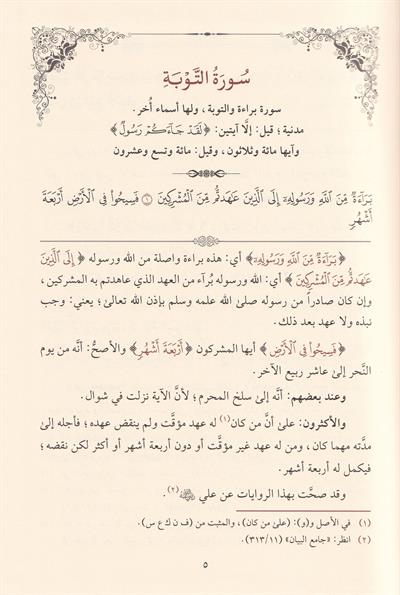 سُورَةُ التَّوْبَةِ
سورة براءة والتوبة ، ولها أسماء أُخر .
مدنية ؛ قيل: إلّا آيتين: ﴿لَقَدْ جَاءَكُمْ رَسُولٌ﴾
وآيها مائة وثلاثون ، وقيل: مائة وتسع وعشرون
بَرَاءَةٌ مِّنَ اللَّهِ وَرَسُولِهِ إِلَى الَّذِينَ عَاهَدتُّم مِّنَ الْمُشْرِكِينَ ۝١ فَسِيحُوا فِي الْأَرْضِ أَرْبَعَةَ
أَشْهُرٍ
﴿بَرَاءَةٌ مِّنَ اللَّهِ وَرَسُولِهِ﴾ أي: هذه براءة واصلة من الله ورسوله ﴿إِلَى الَّذِينَ
عَاهَدتُّم مِّنَ الْمُشْرِكِينَ﴾ أي: الله ورسوله بُرآء من العهد الذي عاهدتم به المشركين ،
وإن كان صادراً من رسوله صلى الله علمه وسلم بإذن الله تعالىٰ ؛ يعني: وجب
نبذه ولا عهد بعد ذلك .
﴿فَسِيحُوا فِي الْأَرْضِ﴾ أيها المشركون ﴿أَرْبَعَةَ أَشْهُرٍ﴾ والأصحُّ: أنَّه من يوم
النَّحر إلىٰ عاشر ربيع الآخر .
وعند بعضهم: أنَّه إلىٰ سلخ المحرم ؛ لأنَّ الآية نزلت في شوال .
والأكثرون: علىٰ أنَّ من كان(١) له عهد مؤقَّت ولم ينقض عهده ؛ فأجله إلىٰ
مدَّته مهما كان ، ومن له عهد غير مؤقَّت أو دون أربعة أشهر أو أكثر لكن نقضه ؛
فيكمل له أربعة أشهر .
وقد صحَّت بهذا الروايات عن علي رضي الله عنه(٢) .
(١) في الأصل و(و): (علىٰ من كان) ، والمثبت من (ف ن ك ع س) .
(٢) انظر: «جامع البيان» (٣١٣/١١) .
٥